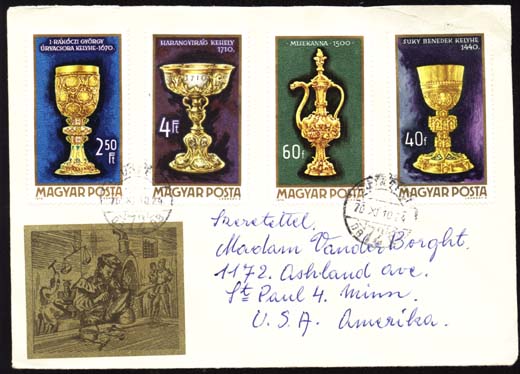 I·RÁKÓCZI GYÖRGY
ÚRVACSORA KELYHE·1670.
2 50 Ft
MAGYAR POSTA
HARANGVIRÁG KEHELY
1710.
4 Ft
MAGYAR POSTA
MISEKANNA·1500·
60f
MAGYAR POSTA
SUKY BENEDEK KELYHE
1440.
40f
MAGYAR POSTA
70 XI 10 24
70 XI 10 24
Szeretettel.
Madam VanderBorght.
1172. Ashland ave.
St Paul 4. Minn.
U.S.A. Amerika.